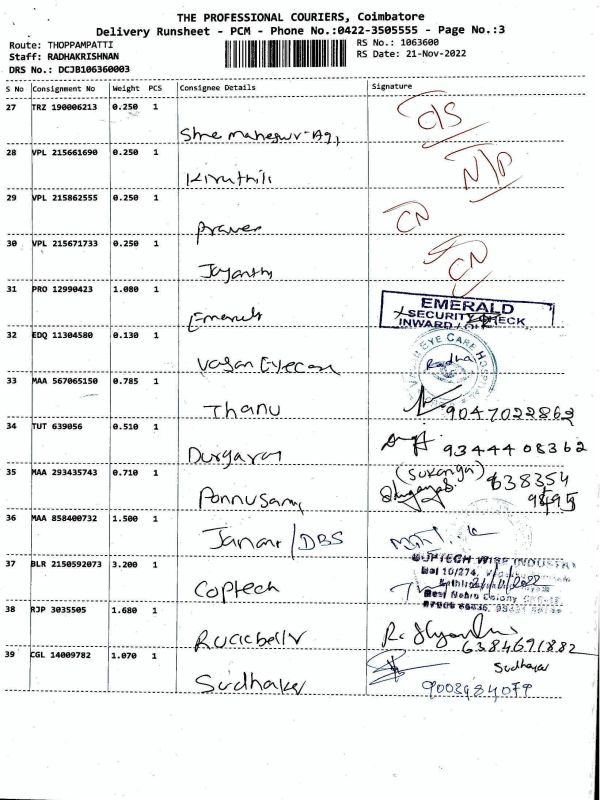 THE PROFESSIONAL COURIERS, Coimbatore
Delivery Runsheet - PCM - Phone No.:0422-3505555 - Page No.:3
Route: THOPPAMPATTI RS No.: 1063600
Staff: RADHAKRISHNAN RS Date: 21-Nov-2022
DRS No.: DCJB106360003
S No Consignment No Weight PCS Consignee Details Signature
27 TRZ 190006213 0.250 1
28 VPL 215661690 0.250 1
N/P
Kiruthik
29 VPL 215862555 0.250 1
CN
30 VPL 215671733 0.250 1
CN
Jayanthi
31 PRO 12990423 1.080 1
EMERALD
SECURITY CHECK
INWARD
32 EDQ 11304580 0.130 1
EYE CARE HOSPITAL
Radha
Vasan Eyecare
33 MAA 567065150 0.785 1
Thanu 9047022862
34 TUT 639056 0.510 1
9344408362
35 MAA 293435743 0.710 1
(Sukanya) 638354
Ponnusamy
36 MAA 858400732 1.500 1
/DBS
37 BLR 2150592073 3.200 1
WISE INDUSTRI
No! 10/274,
21/11/2022
Coptech
Nehru Colony
38 RJP 3035505 1.680 1
6384691882
39 CGL 14009782 1.070 1
Sudhakar
Sudhakar